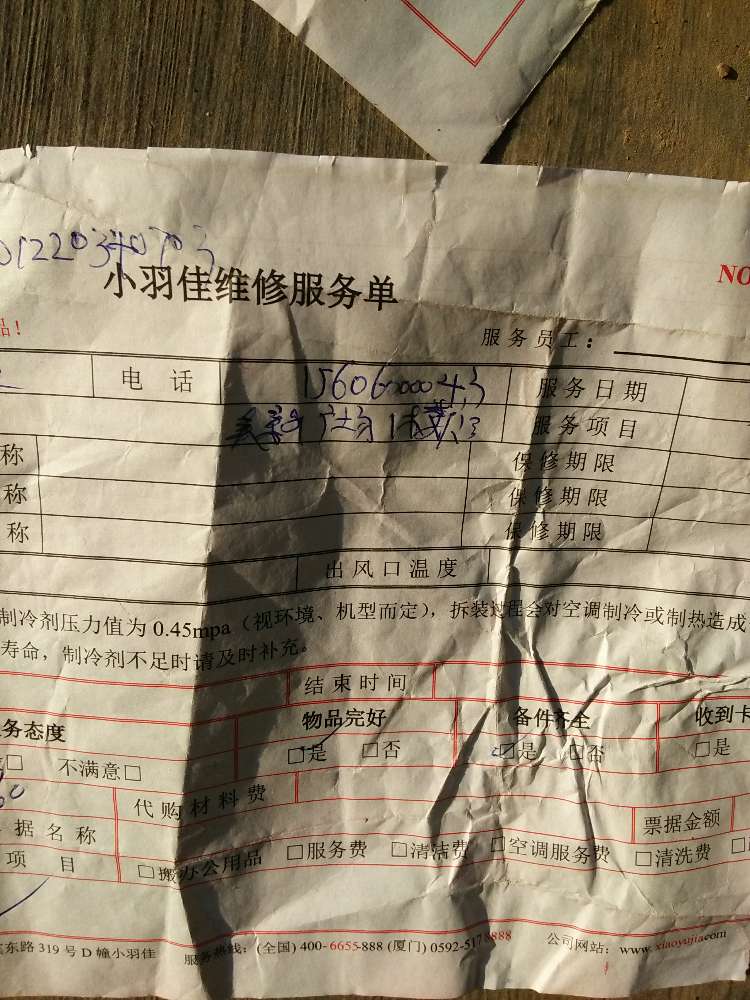 01220340703
小羽佳维修服务单
NO
品!
服务员工:
电话 15606000043 服务日期
服务项目
称 保修期限
称 保修期限
称 保修期限
出风口温度
制冷剂压力值为 0.45mpa（视环境、机型而定），拆装过程会对空调制冷或制热造成
寿命，制冷剂不足时请及时补充。
结束时间
务态度 物品完好 备件齐全 收到卡
□ 不满意□ □是 □否 □是 □否 □是
代购材料费
据名称 票据金额
项目 □搬办公用品 □服务费 □清洁费 □空调服务费 □清洗费
东路 319 号 D 幢小羽佳 服务热线：(全国) 400-6655-888 (厦门) 0592-5178888 公司网站：www.xiaoyujia.com